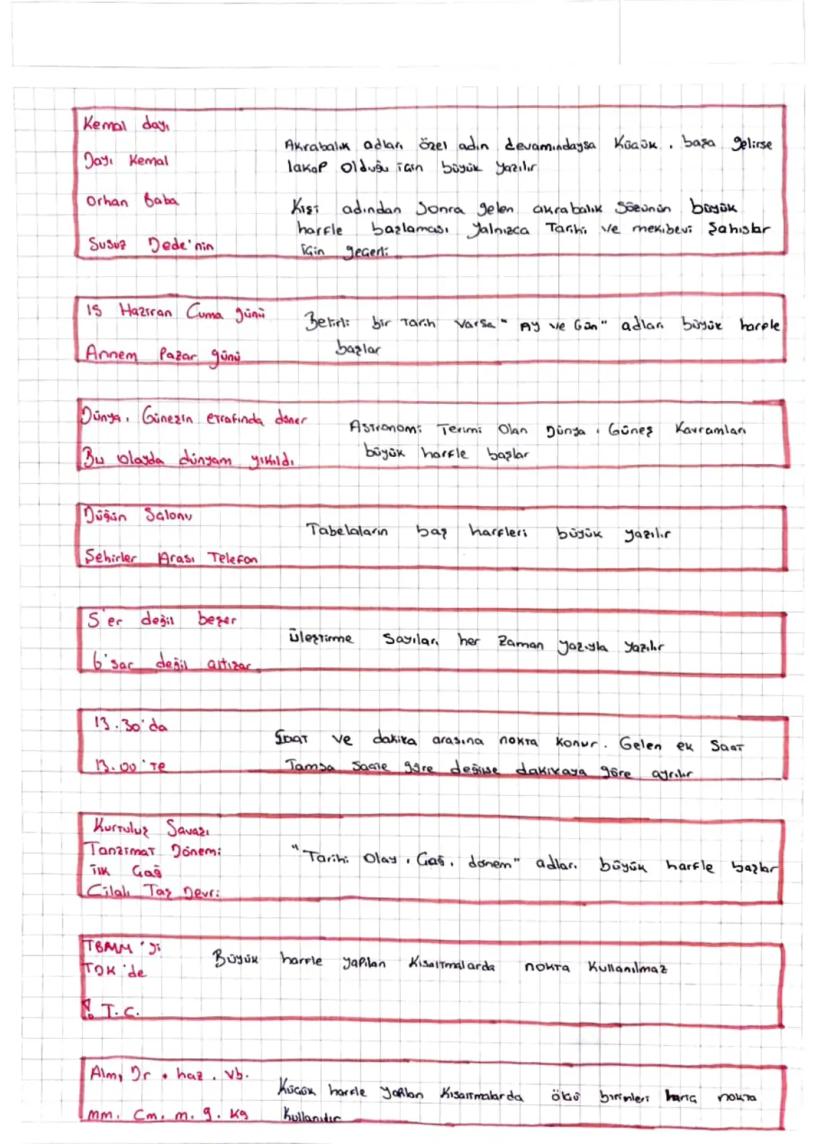 Kemal dayı
Dayı Kemal
Akrabalık adları özel adın devamındaysa Küçük, başa gelirse
lakap olduğu için büyük yazılır
Orhan Baba
Susuz Dede'nin
Kişi adından Sonra gelen akrabalık Sözünün büyük
harfle başlaması yalnızca Tarihi ve Şahıslar
için geçerli
15 Haziran Cuma günü
Annem Pazar günü
Belirli bir Tarih varsa "Ay ve Gün" adları büyük harfle
başlar
Dünya, Güneşin etrafında döner
Bu olayda dünyam yıkıldı
Astronomi Terimi Olan Dünya, Güneş Kavramları
büyük harfle başlar
Düğün Salonu
Şehirler Arası Telefon
Tabelaların baş harfleri büyük yazılır
5'er değil beşer
6'şar değil altışar
Üleştirme Sayıları her Zaman yazıyla yazılır
13.30'da
13.00'te
Saat ve dakika arasına nokta konur. Gelen ek Saat
Tamsa Saate göre değilse dakikaya göre ayrılır
Kurtuluş Savaşı
Tanzimat Dönemi
İlk Çağ
Cilalı Taş Devri
"Tarihi Olay, Çağ, dönem" adları büyük harfle başlar
TBMM'yi
TDK'de
T.C.
Büyük harfle yapılan Kısaltmalarda nokta Kullanılmaz
Alm, Dr. haz. vb.
mm. Cm. m. g. Kg
Küçük harfle yapılan Kısaltmalarda ölçü birimleri hariç nokta
Kullanılır